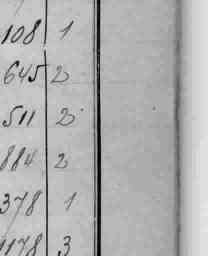 108 1
645 2
511 2
884 2
378 1
1178 3